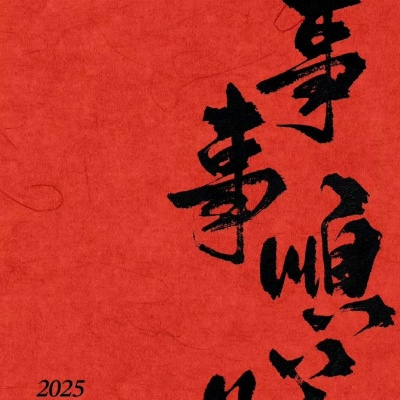 事事順
2025